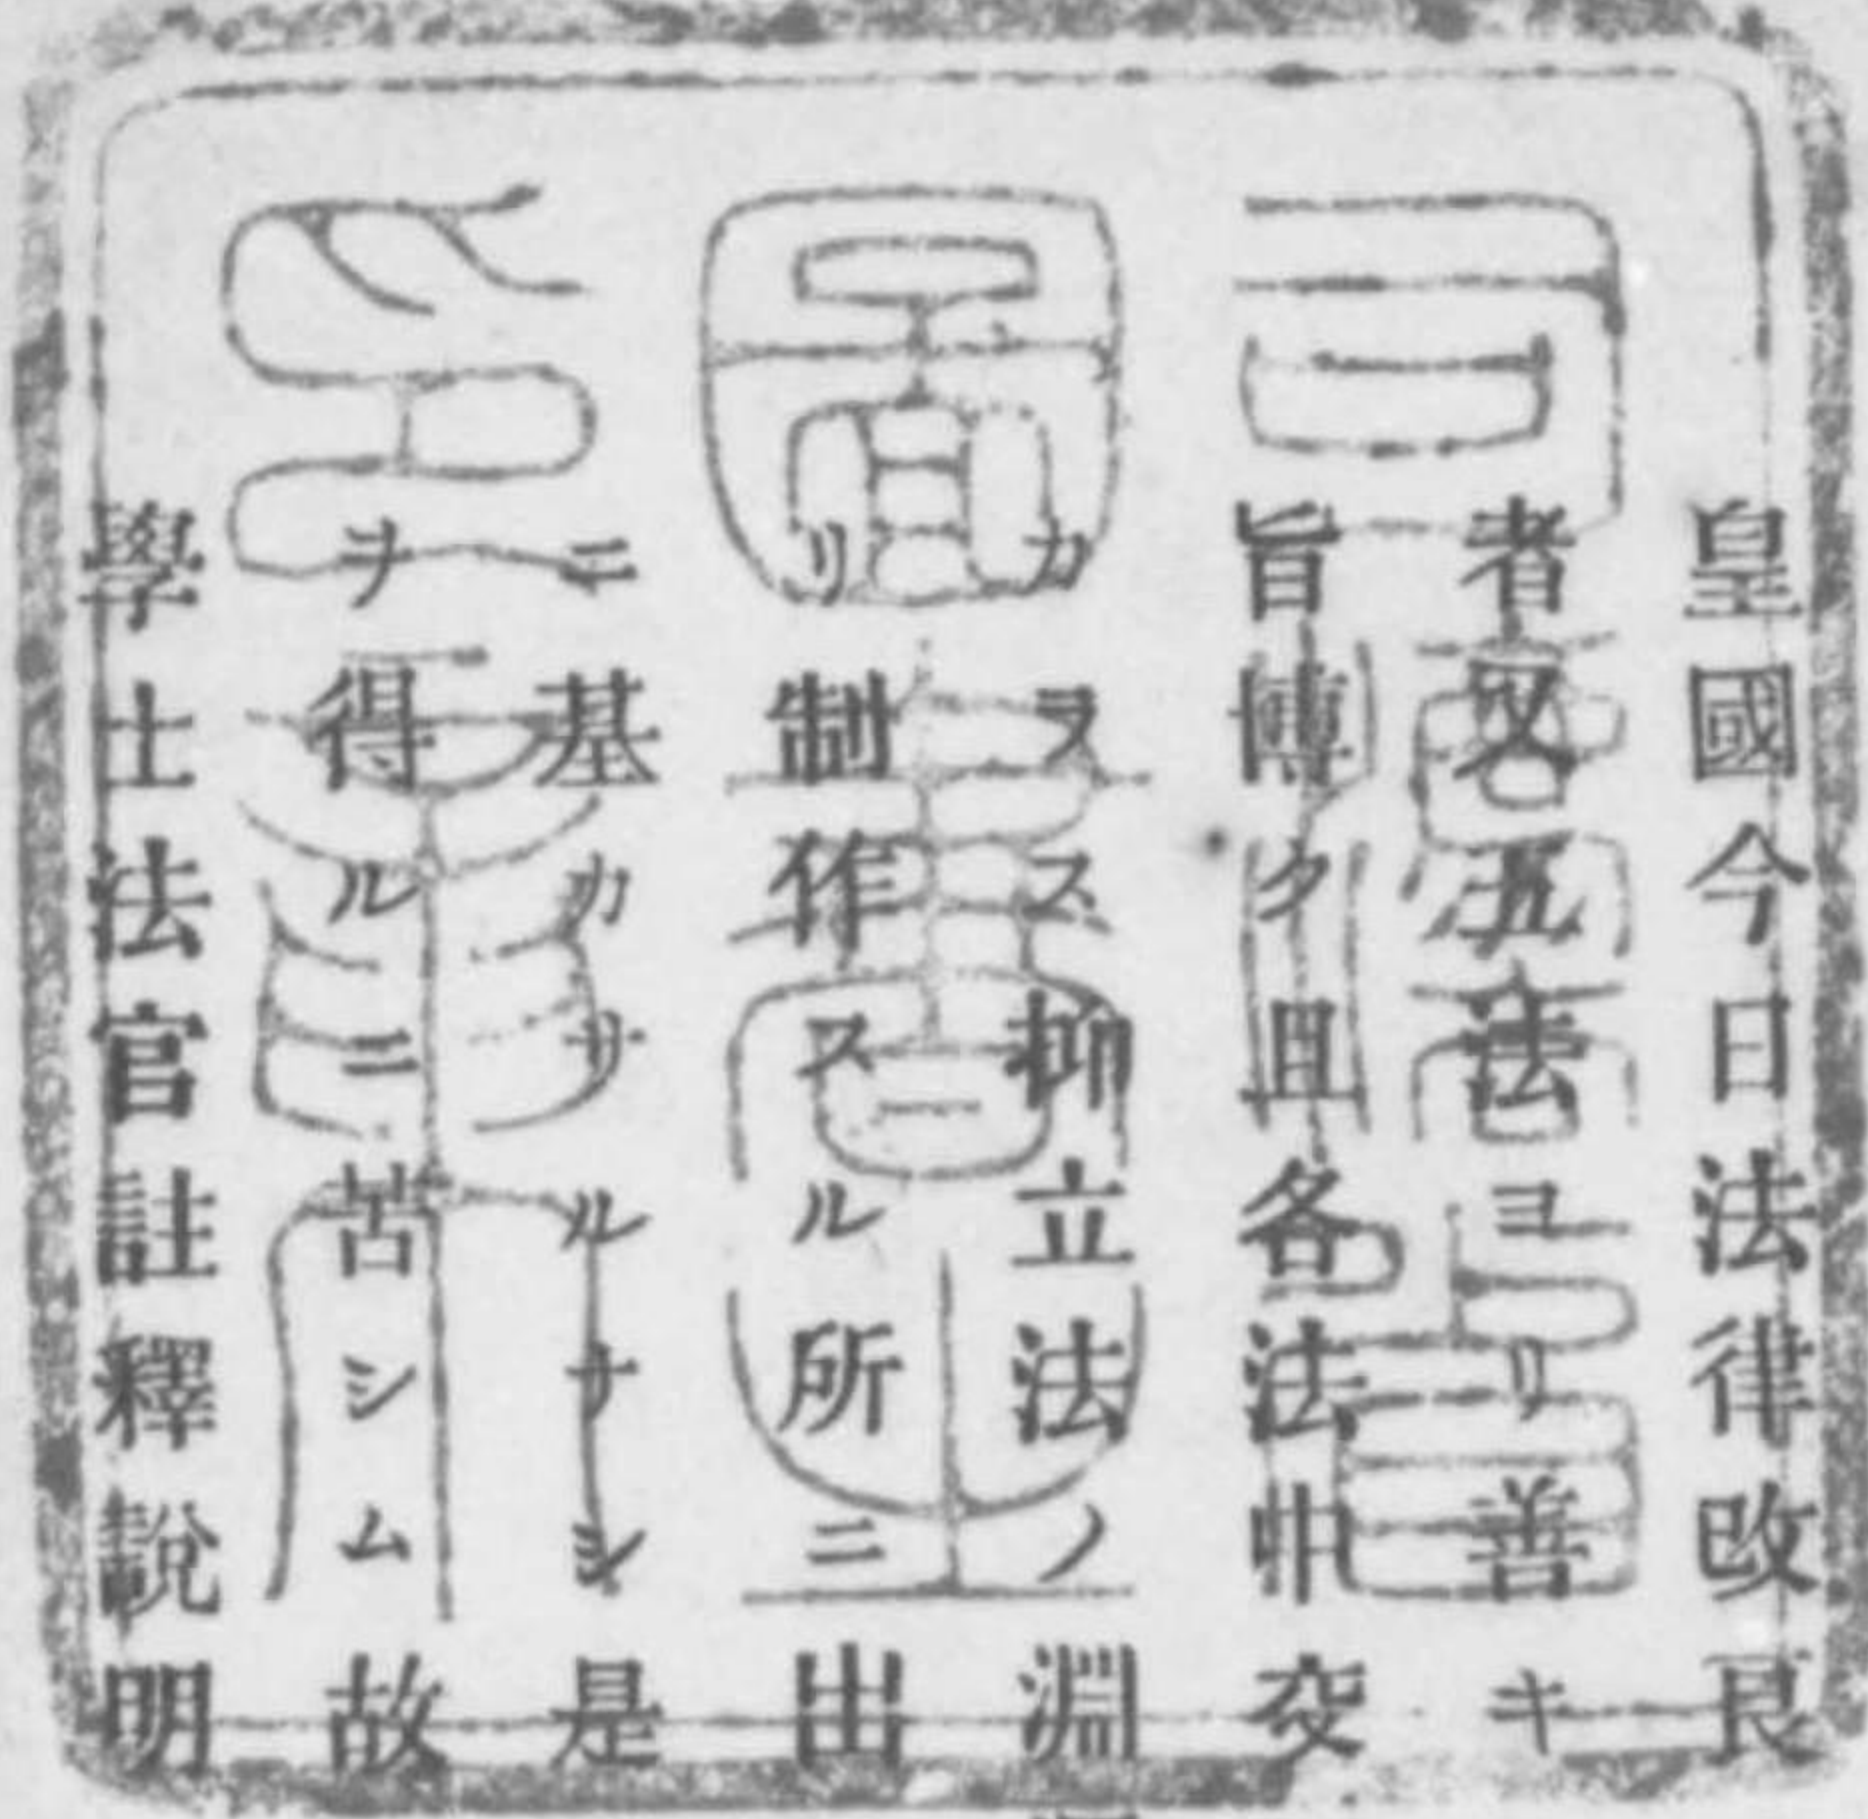 皇國今日法律改良
者又五法ヨリ善キ
旨博ク且各法中交
カラス抑立法ノ淵
リ制作スル所ニ出
ニ基カサルナシ是
ヲ得ルニ苦シム故
學士法官註釋說明
司法省
圖書之